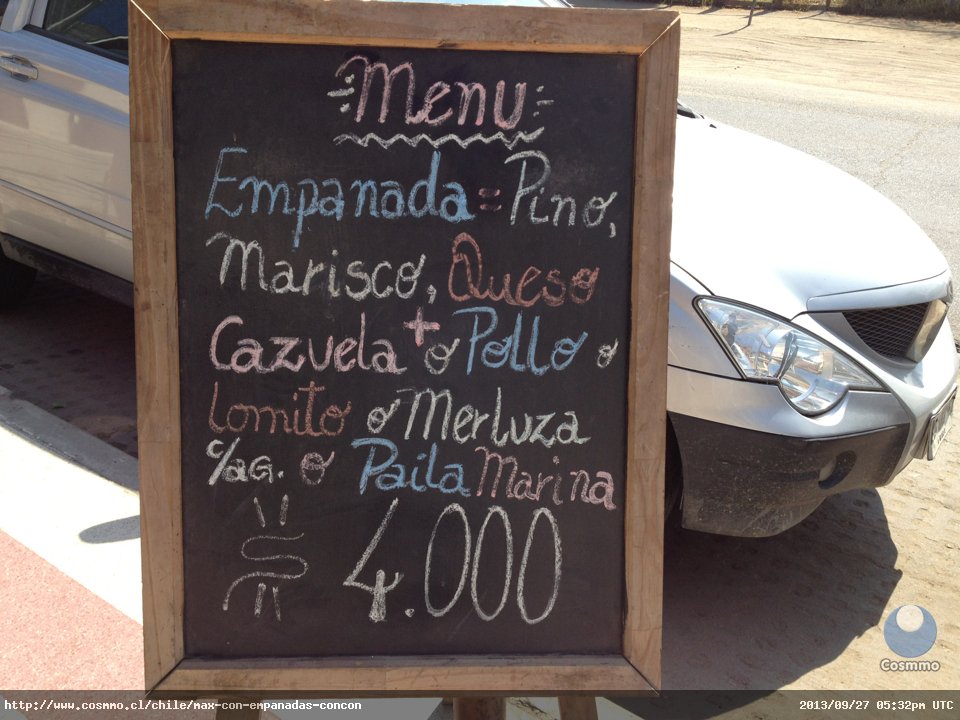 Menu
Empanada = Pino,
Marisco, Queso
Cazuela + o Pollo o
lomito o Merluza
c/AG. o Paila Marina
$ 4.000
Cosmmo
http://www.cosmmo.cl/chile/max-con-empanadas-concon 2013/09/27 05:32pm UTC